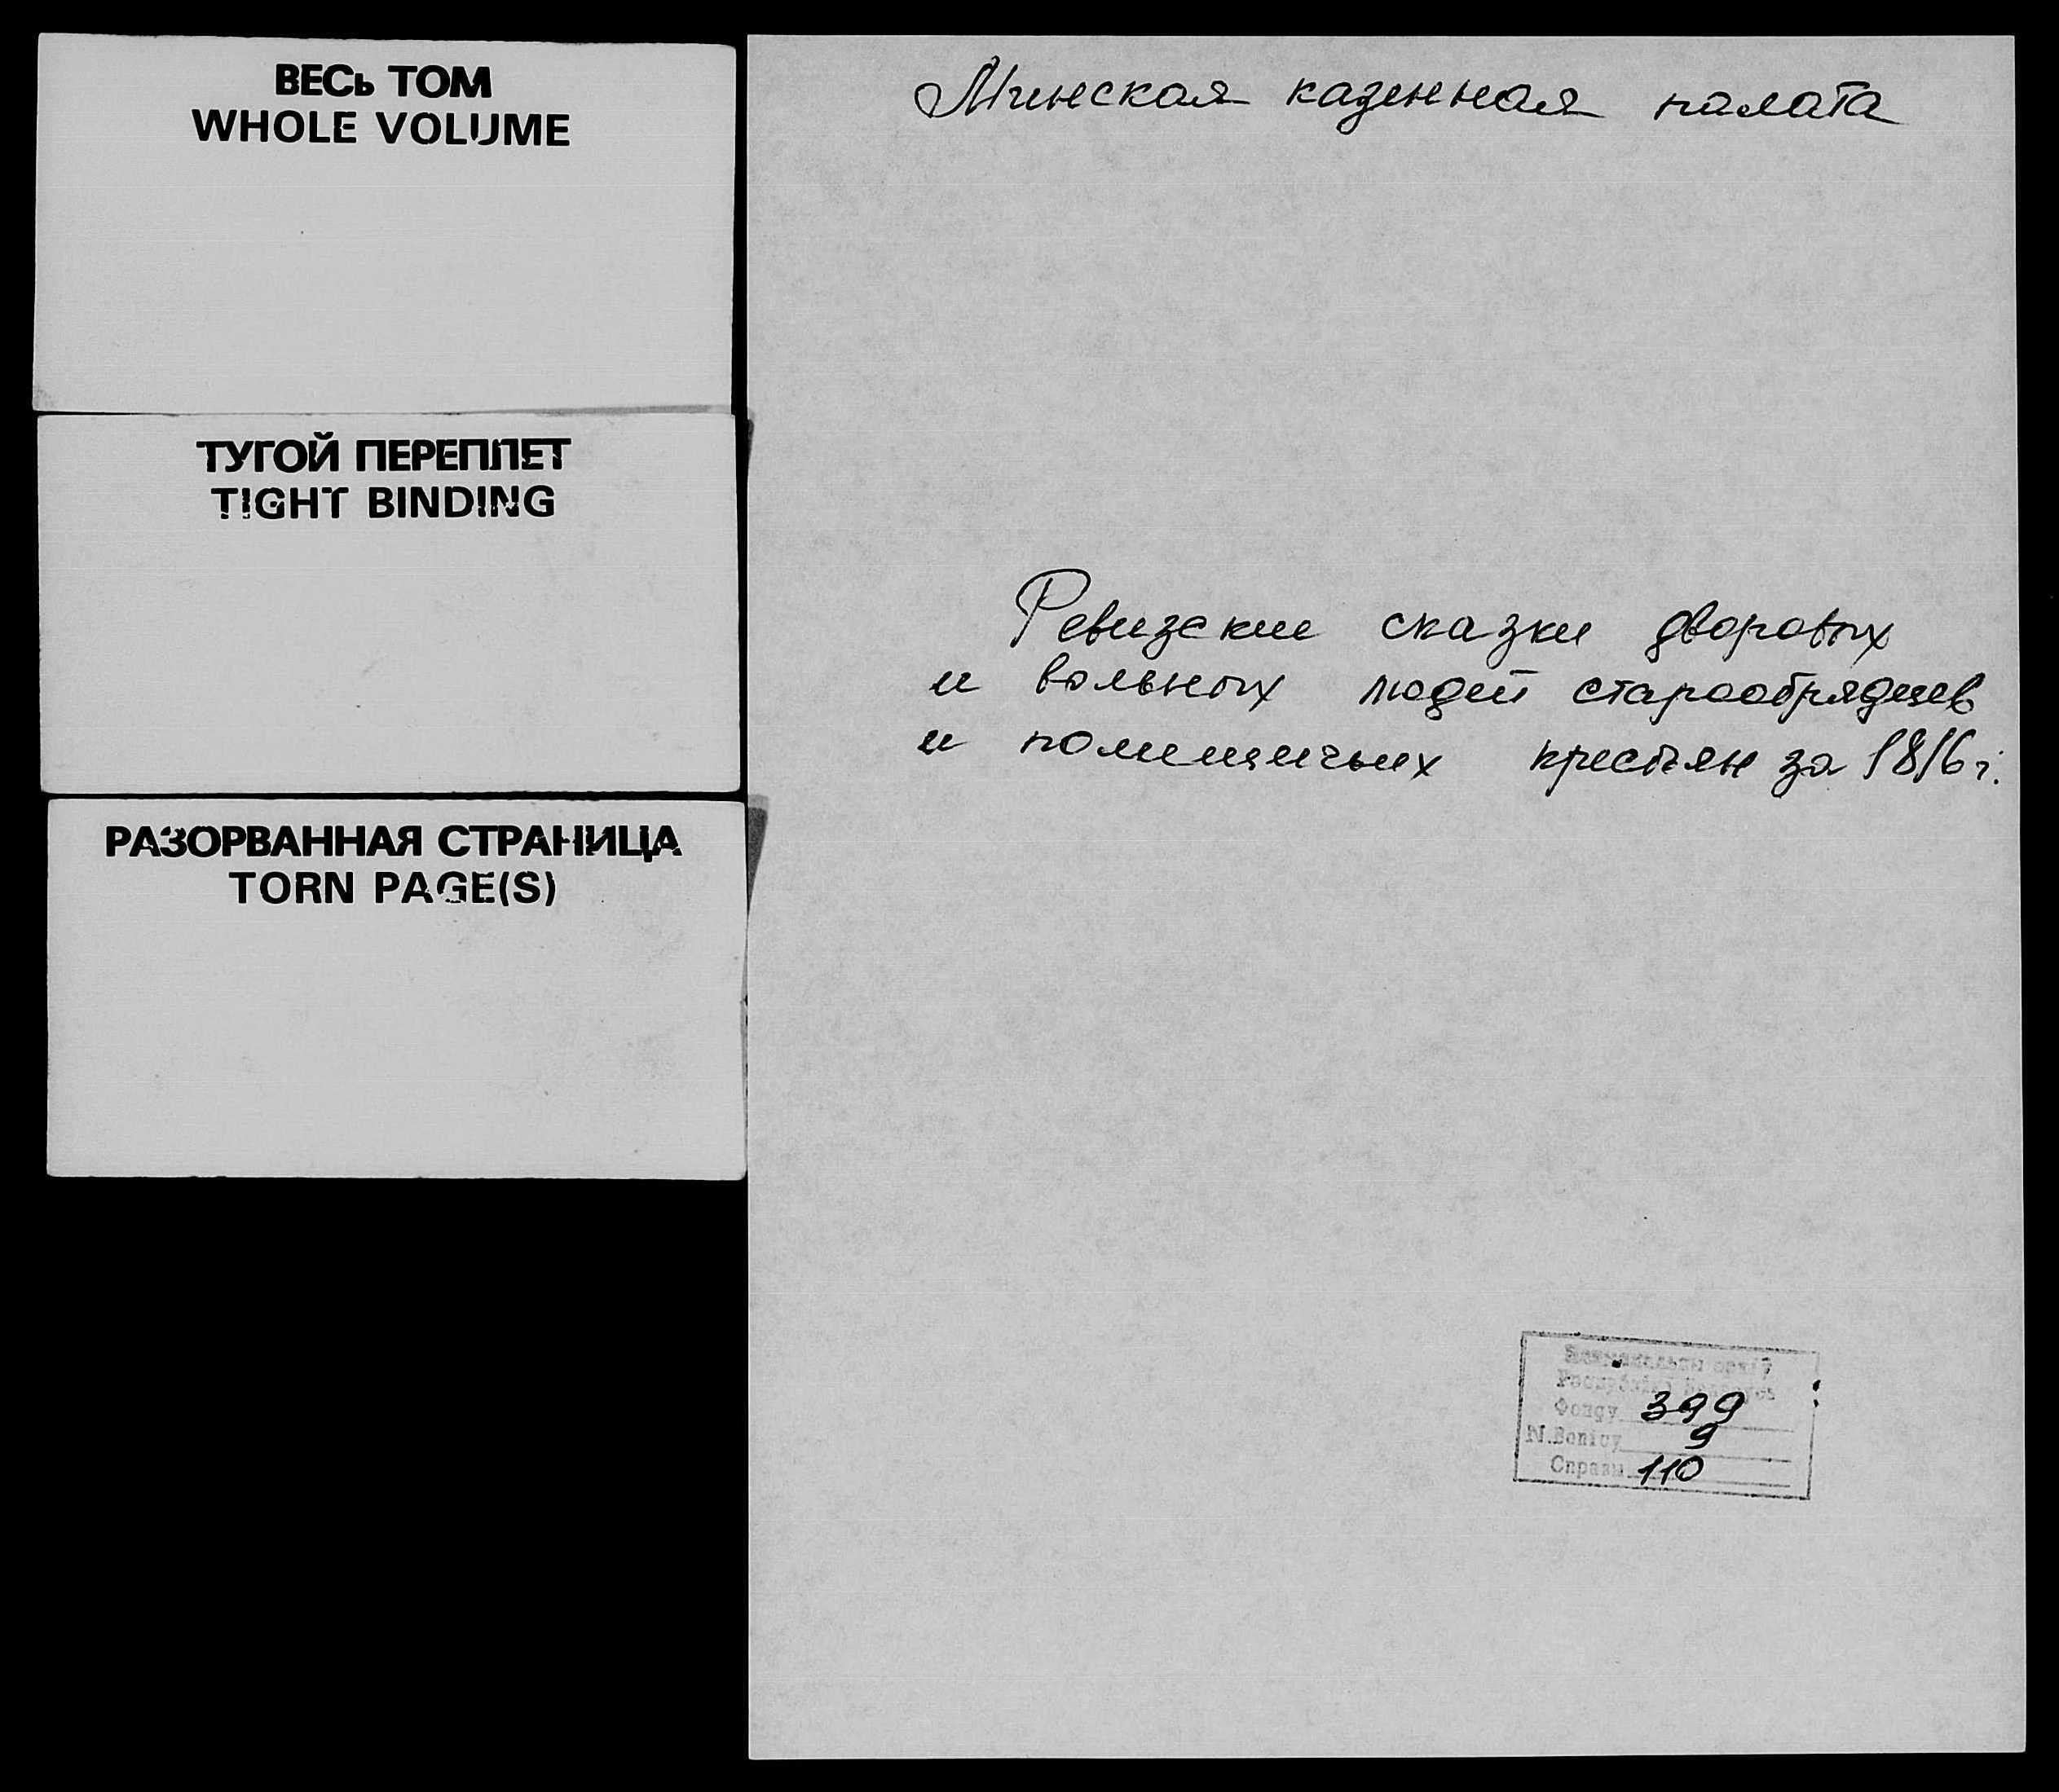 ВЕСЬ ТОМ
WHOLE VOLUME
ТУГОЙ ПЕРЕПЛЕТ
TIGHT BINDING
РАЗОРВАННАЯ СТРАНИЦА
TORN PAGE(S)
Минская казенная палата
Ревизские сказки дворовых
и вольных людей старообрядцев
и помещичьих крестьян за 1816 г.
Фонду 399
9
Справы 110